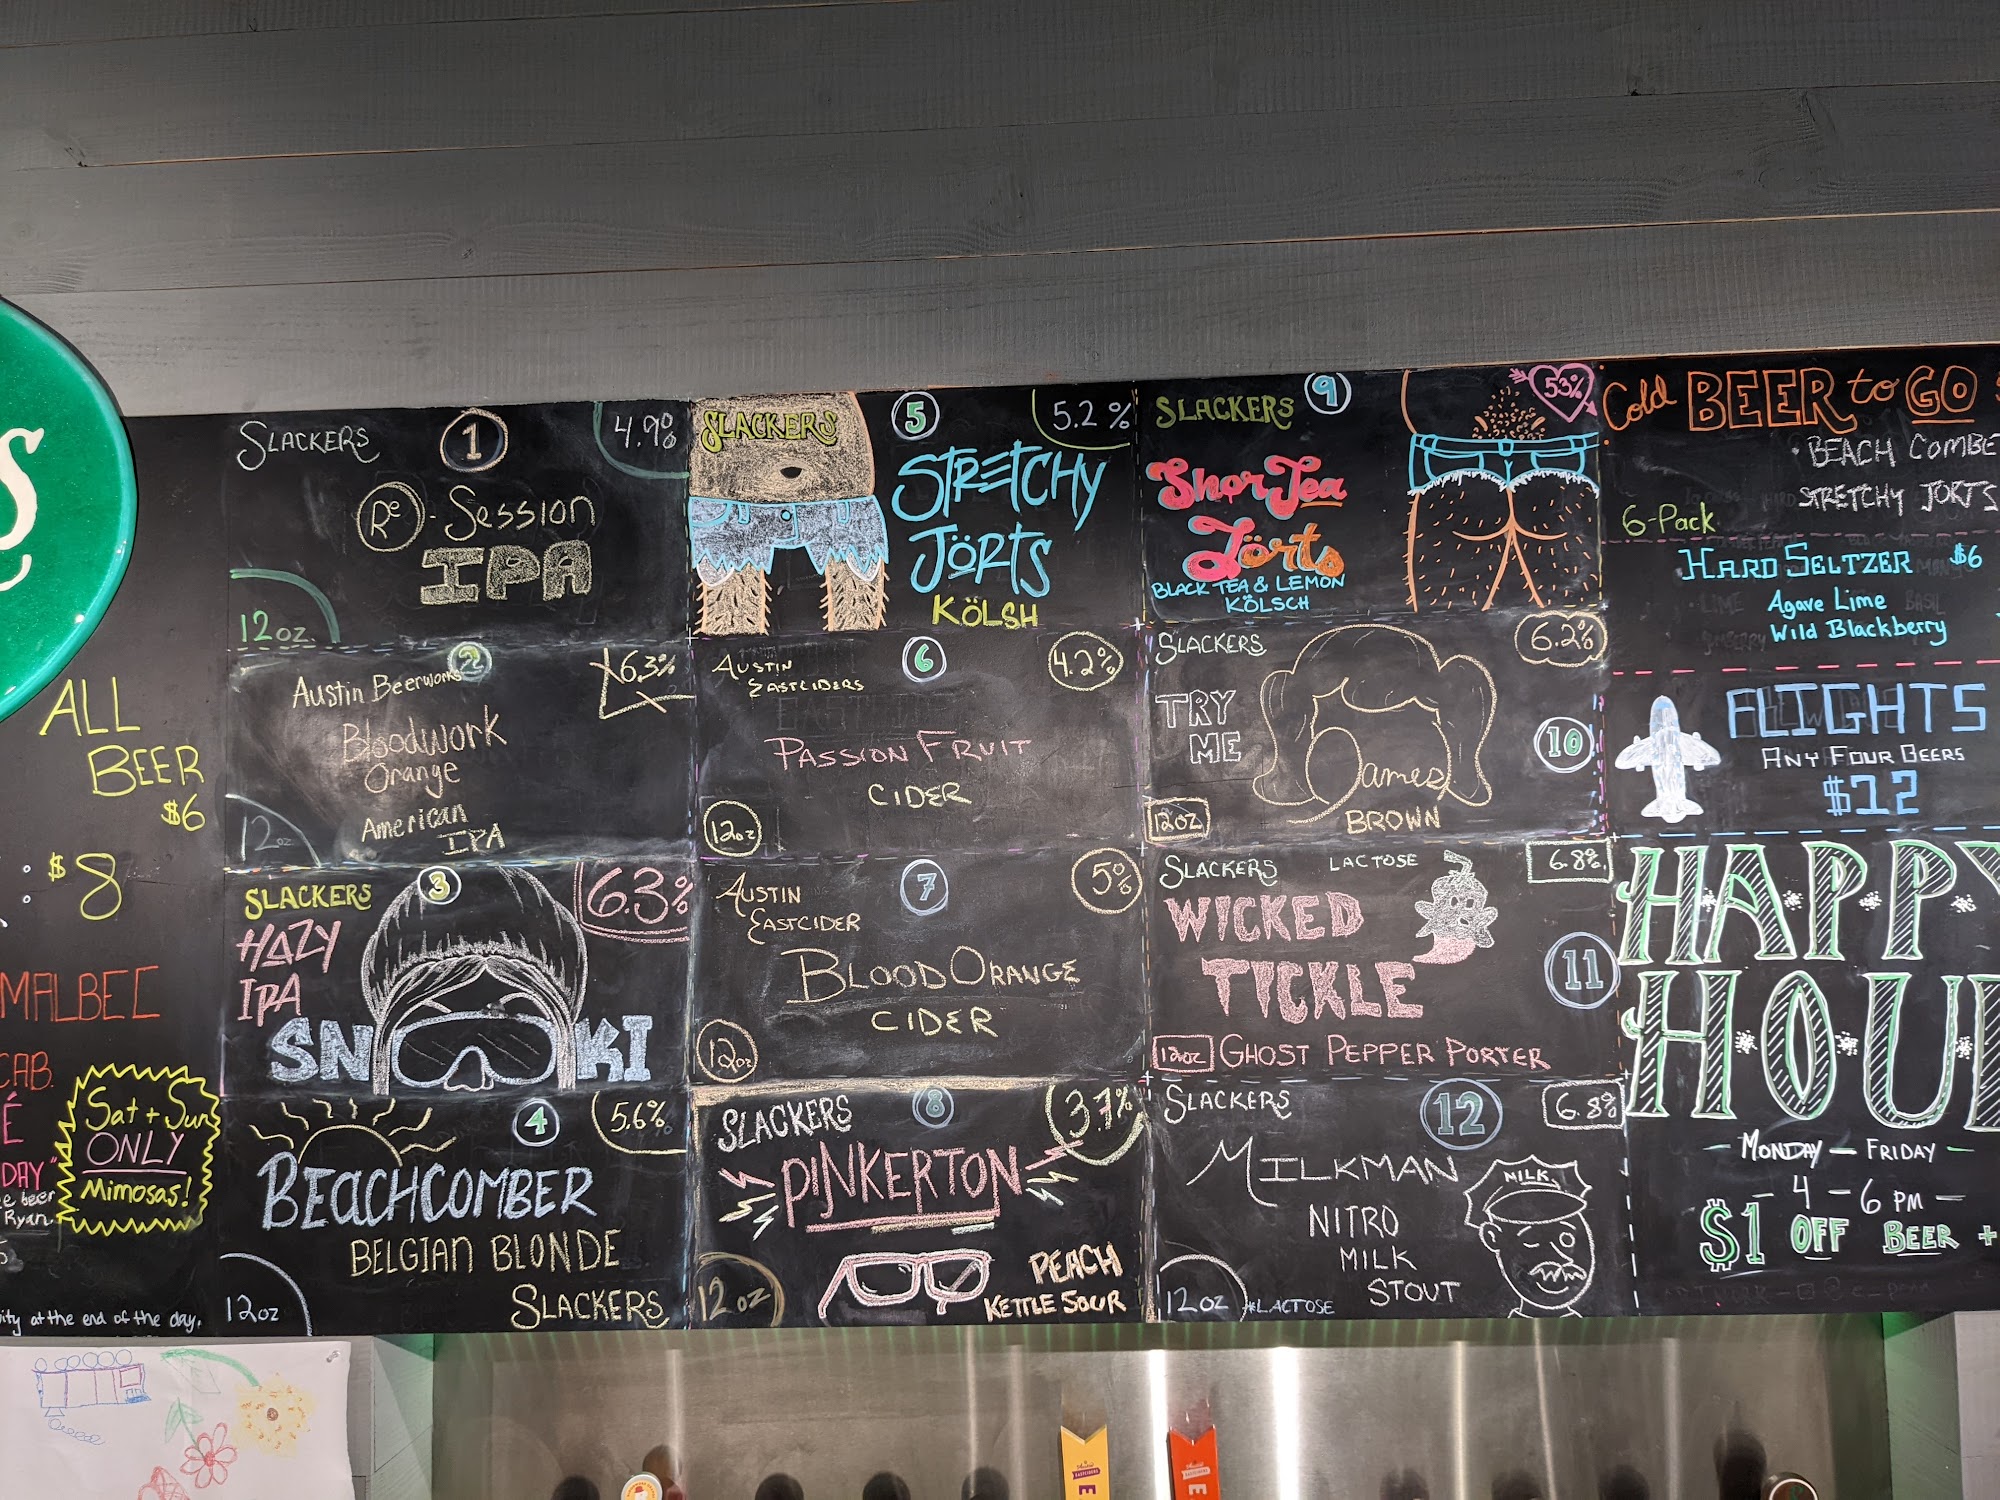 S
ALL
BEER
$6
: $8
MALBEC
CAB.
É
DAY"
e beer
Ryan.
Sat + Sun
ONLY
Mimosas!
ity at the end of the day.
SLACKERS
1
4.9%
Re-Session
IPA
12oz.
Austin Beerworks
2
6.3%
Bloodwork
Orange
American
IPA
12oz
SLACKERS
3
6.3%
HAZY
IPA
SNOKI
4
5.6%
BEACHCOMBER
BELGIAN BLONDE
SLACKERS
12oz
SLACKERS
5
5.2%
STRETCHY
JÖRTS
KÖLSH
AUSTIN
EASTCIDERS
6
4.2%
PASSION FRUIT
CIDER
12oz
AUSTIN
EASTCIDER
7
5%
BLOOD ORANGE
CIDER
12oz
SLACKERS
8
3.7%
PINKERTON
PEACH
KETTLE SOUR
12oz
SLACKERS
9
5.3%
ShorTea
Jörts
BLACK TEA & LEMON
KÖLSCH
SLACKERS
6.2%
TRY
ME
10
James
BROWN
12oz
SLACKERS
LACTOSE
6.8%
WICKED
TICKLE
11
12oz
GHOST PEPPER PORTER
SLACKERS
12
6.8%
MILKMAN
NITRO
MILK
STOUT
MILK
12oz
*LACTOSE
Cold BEER to GO
• BEACH COMBE
STRETCHY JORTS
6-Pack
HARD SELTZER $6
Agave Lime
Wild Blackberry
FLIGHTS
ANY FOUR BEERS
$12
HAPPY
HOU
MONDAY — FRIDAY —
— 4 — 6 PM —
$1 OFF BEER +
EASTCIDERS
E
E